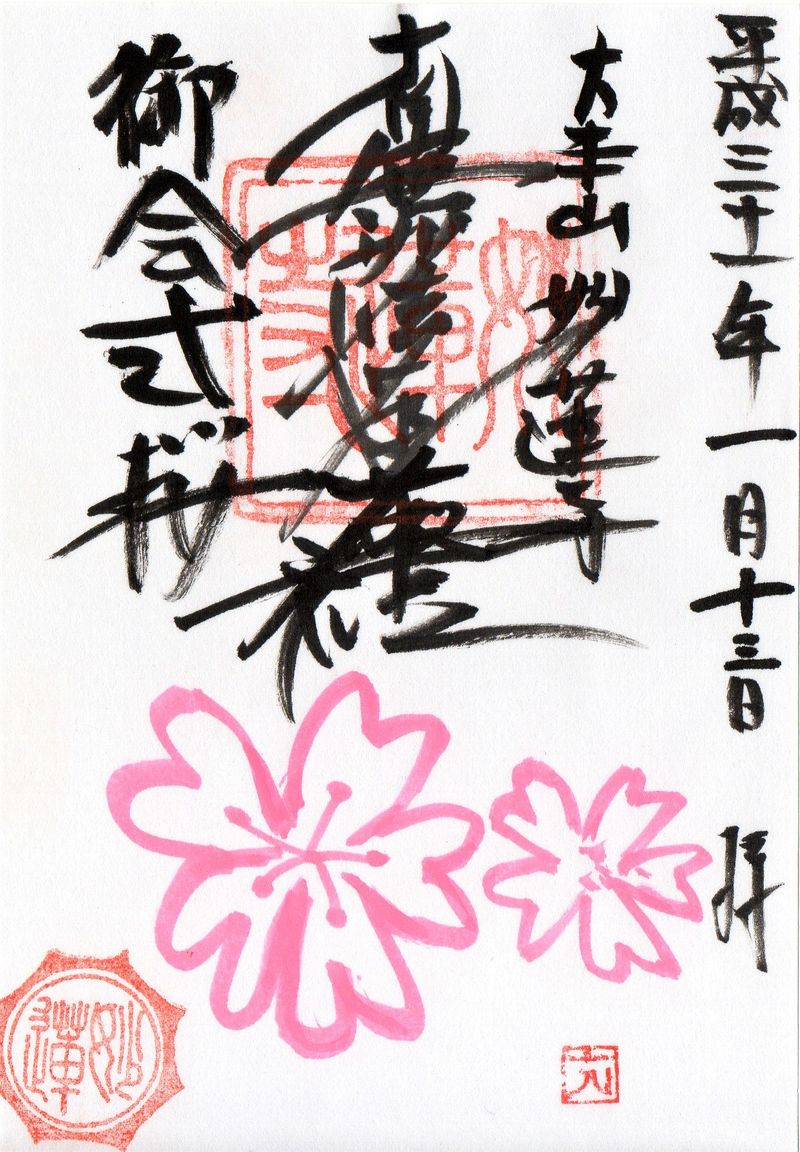 平成三十一年一月十三日 拝
大本山妙蓮寺
南無妙法蓮華経
御会式桜
妙蓮寺
妙蓮